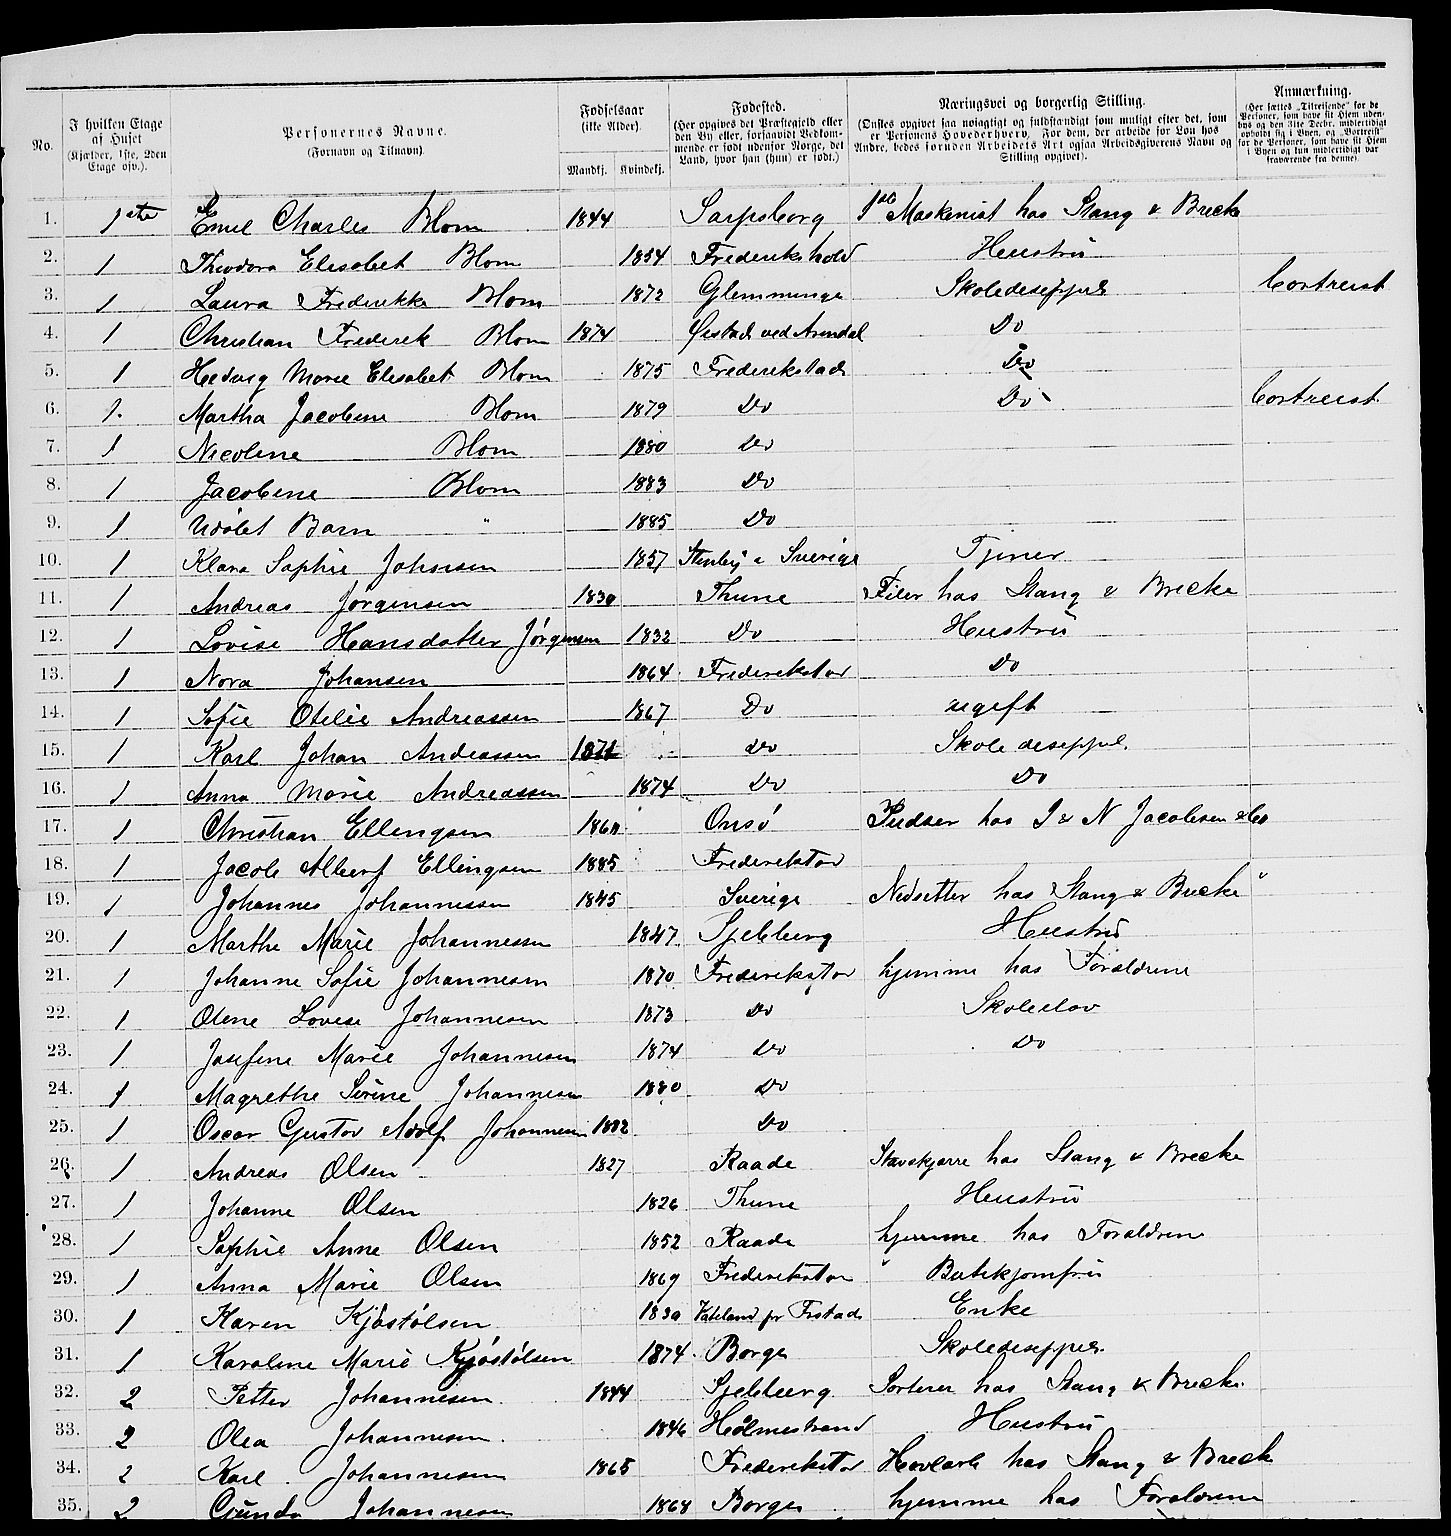 No.
I hvilken Etage af Huset (Kjælder, 1ste, 2den Etage osv.).
Personernes Navne. (Fornavn og Tilnavn)
Fødselsaar (ikke Alder).
Mandkj. Kvindekj.
Fødested. (Her opgives det Præstegjeld eller den By eller, forsaavidt Vedkommende er født udenfor Norge, det Land, hvor han (hun) er født.)
Næringsvei og borgerlig Stilling. (Ønstes opgivet saa nøiagtigt og fuldstændigt som muligt efter det, som er Personens Hovederhverv. For dem, der arbeide for Løn hos Andre, bedes foruden Arbeidets Art ogsaa Arbeidsgiverens Navn og Stilling opgivet).
Anmærkning. (Her sættes „Tilreisende“ for de Personer, som have sit Hjem udenbys og den 31te Decbr. midlertidigt opholdt sig i Byen, og „Bortreist“ for de Personer, som have sit Hjem i Byen og kun midlertidigt var fraværende fra denne).
1. 1ste Emil Charles Blom 1844 Sarpsborg Maskinist hos Stang & Brecke
2. 1 Theodora Elisabet Blom 1854 Frederikshald Hustru
3. 1 Laura Frederikke Blom 1872 Glemminge Skoledesippel Bortreist
4. 1 Christian Frederik Blom 1874 Øistad ved Arendal Do
5. 1 Hedvig Marie Elisabet Blom 1875 Frederikstad Do
6. 1. Martha Jacobine Blom 1879 Do Do Bortreist
7. 1 Nicoline Blom 1880 Do
8. 1 Jacobine Blom 1883 Do
9. 1 Udøbt Barn " 1885 Do
10. 1 Klara Sophie Johnsen 1857 Stenby i Sverige Tjener
11. 1 Andreas Jørgensen 1830 Thune Filer hos Stang & Brecke
12. 1 Lovise Hansdatter Jørgensen 1832 Do Hustru
13. 1 Nora Johansen 1864 Frederikstad Do
14. 1 Sofie Otelie Andreassen 1867 Do ugift
15. 1 Karl Johan Andreassen 1871 Do Skoledeseppel.
16. 1 Anna Marie Andreassen 1874 Do Do
17. 1 Christian Ellengsen Onsø Pudser hos I & N Jacobsen & Co
18. 1 Jacob Albert Ellingsen 1885 Frederikstad
19. 1 Johannes Johannessen 1845 Sverige Nedsetter hos Stang & Brecke "
20. 1 Marthe Marie Johannessen 1847. Sjebberg Hustru
21. 1 Johanne Sofie Johannesen 1870 Frederikstad hjemme hos Foraldrene
22. 1 Olene Lovise Johannesen 1873 Do Skoleelev
23. 1 Josefine Marie Johannesen 1874 Do Do
24. 1 Magrethe Serine Johannesen 1880 Do
25. 1 Oscar Gustav Adolf Johannesen 1882 Do
26. 1 Andreas Olsen 1827 Raade Stavskjærre hos Stang & Brecke
27. 1 Johanne Olsen 1826 Thune Hustru
28. 1 Sophie Anne Olsen 1852 Raade hjemme hos Foraldrene
29. 1 Anna Marie Olsen 1869 Frederikstad " Butikjomfru
30. 1 Karen Kjøstølsen 1830 pr Frstad Enke
31. 1 Karoline Marie Kjøstølsen 1874. Borge Skoledeseppel.
32. 2 Petter Johannesen 1844 Sjebberg Sorterer hos Stang & Brecke.
33. 2 Olea Johannesen. 1846 Holmestrand Hustru
34. 2 Karl Johannesen 1865 Frederikstad Høvlarb hos Stang & Breck
35. 2 Gunda Johannesen 1868 Borge hjemme hos Foraldrene